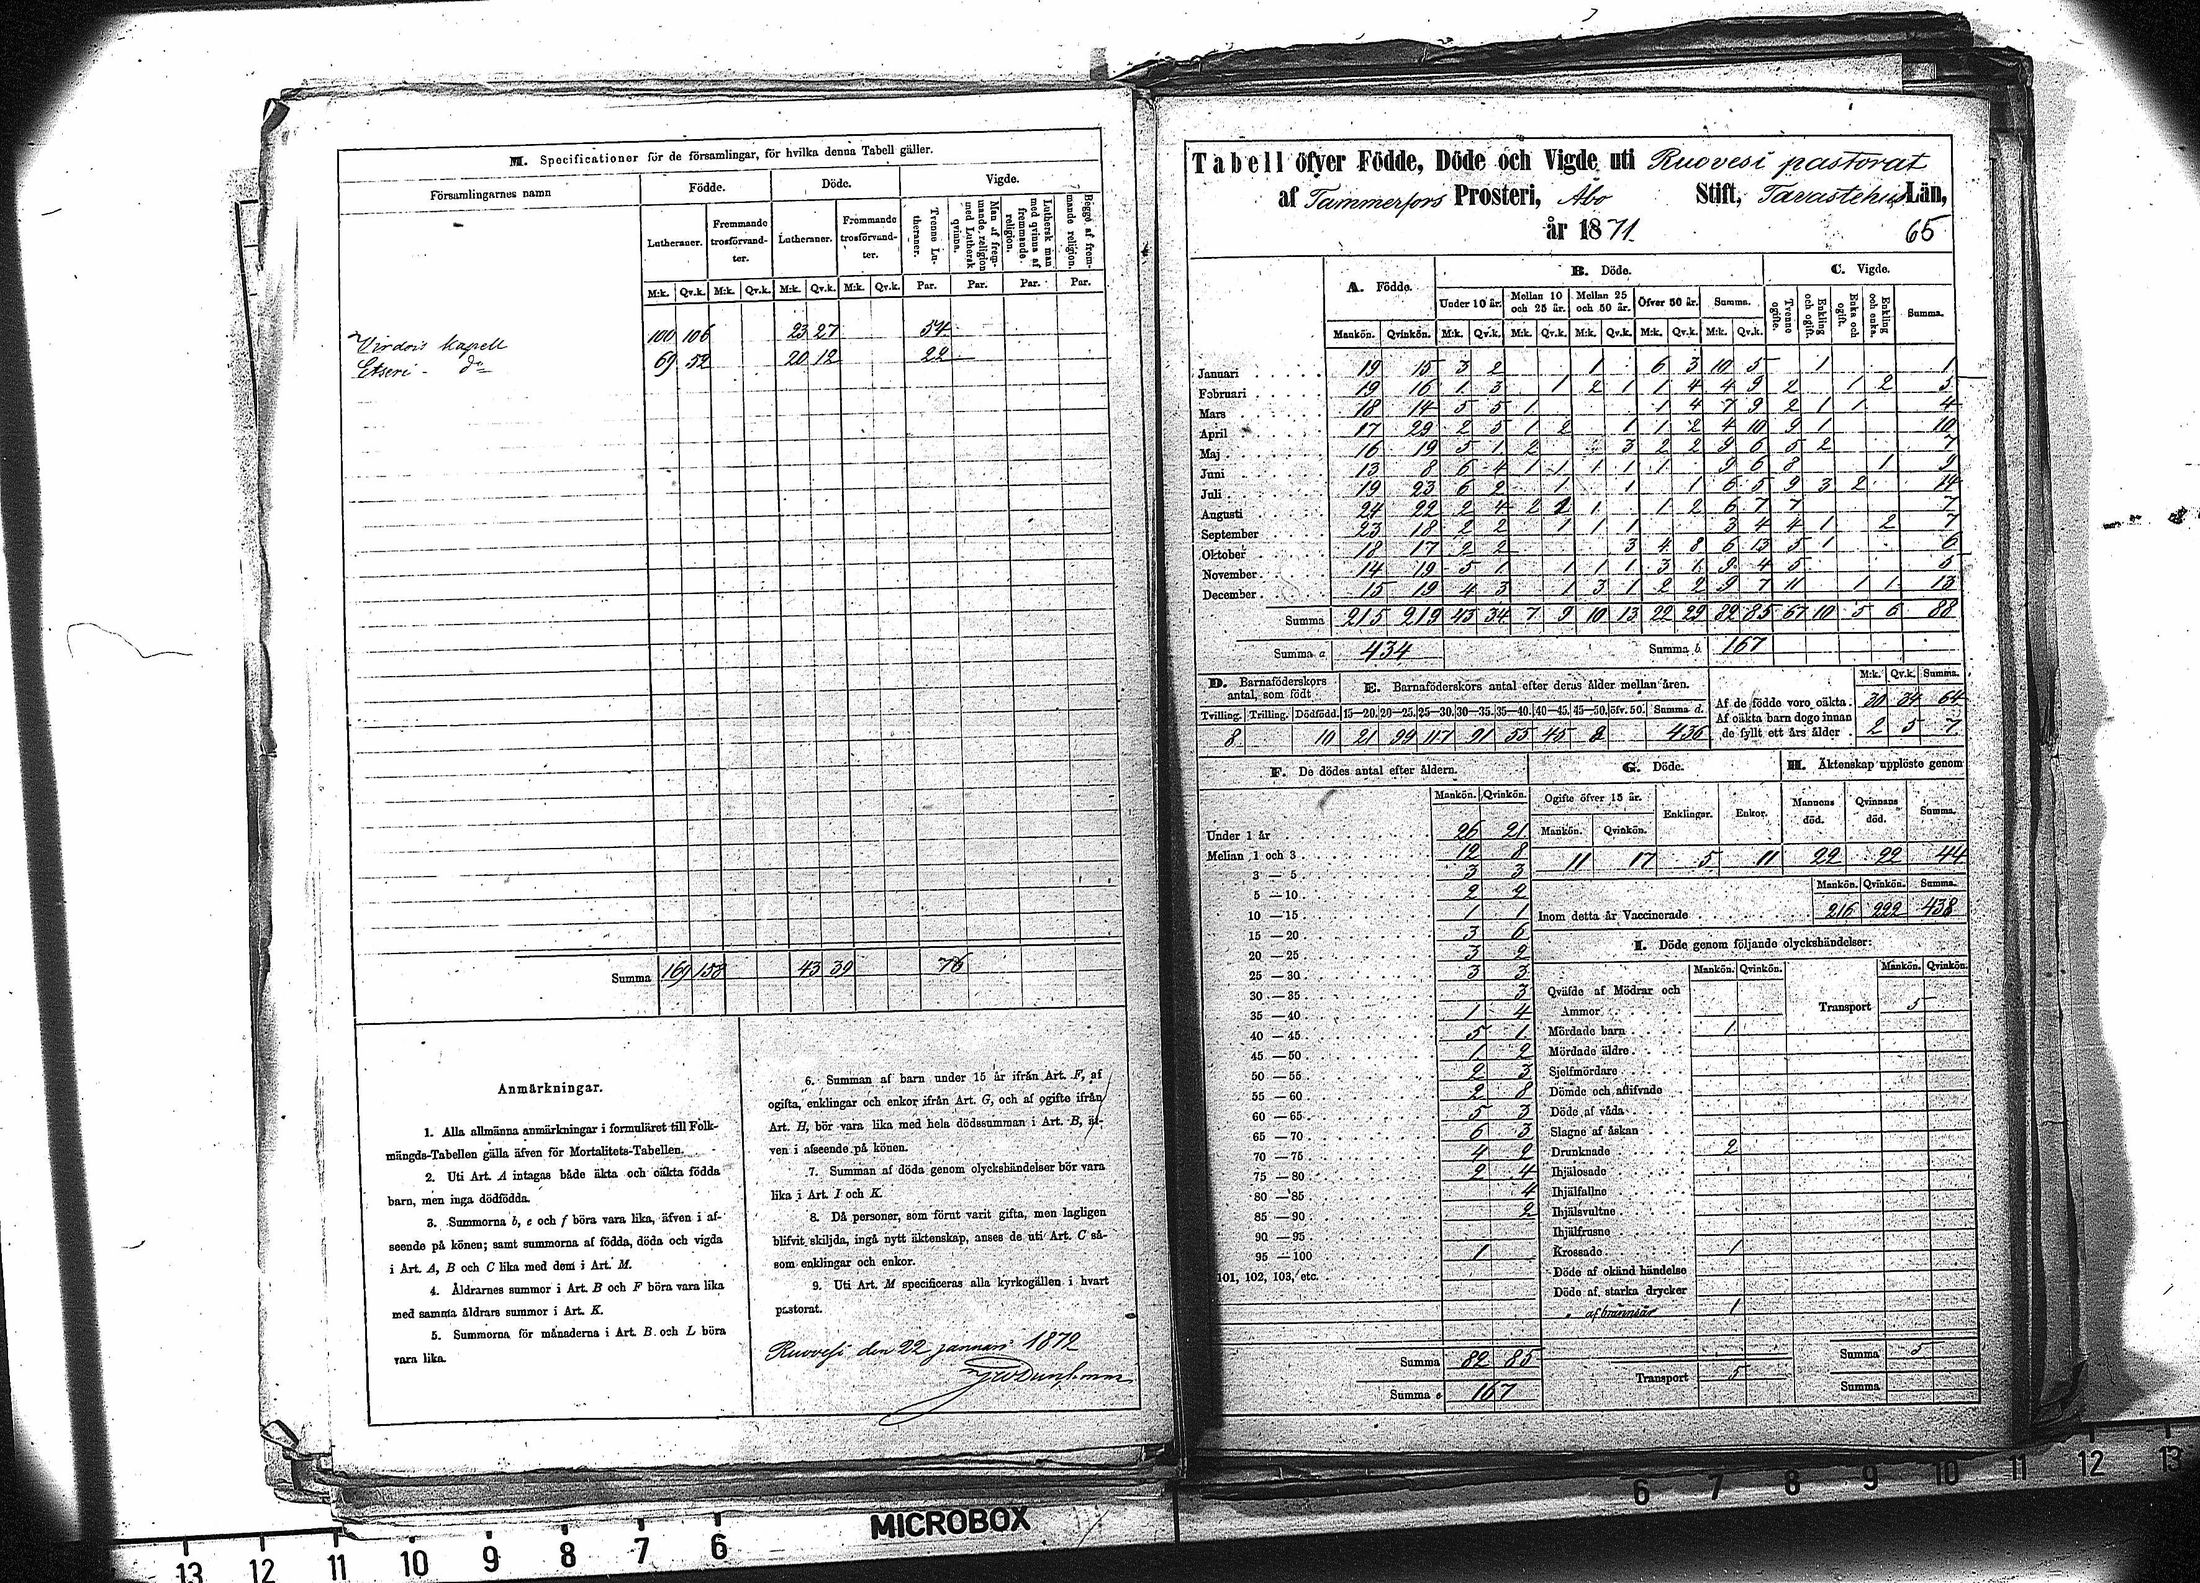 M. Specificationer för de församlingar, för hvilka denna Tabell gäller.
Församlingarnes namn
Födde. Döde. Vigde.
Lutheraner. Fremmande trosförvandter. Lutheraner. Fremmande trosförvandter. Tvenne Lutheraner. Man af fremmande religion med Luthersk qvinna. Luthersk man med qvinna af fremmande religion. Begge af fremmande religion.
M:k. Qv.k. M:k. Qv.k. M:k. Qv.k. M:k. Qv.k. Par. Par. Par. Par.
Virdois Kapell 100 106 23 27 54
Etseri - do 69 52 20 12 22
Summa 169 158 43 39 76
Anmärkningar.
1. Alla allmänna anmärkningar i formuläret till Folk-
mängds-Tabellen gälla äfven för Mortalitets-Tabellen.
2. Uti Art. A intagas både äkta och oäkta födda
barn, men inga dödfödda.
3. Summorna b, e och f böra vara lika, äfven i af-
seende på könen; samt summorna af födda, döda och vigda
i Art. A, B och C lika med dem i Art. M.
4. Åldrarnes summor i Art. B och F böra vara lika
med samma åldrars summor i Art. K.
5. Summorna för månaderna i Art. B och L böra
vara lika.
6. Summan af barn under 15 år ifrån Art. F, af
ogifta, enklingar och enkor ifrån Art. G, och af gifte ifrån
Art. H, bör vara lika med hela dödssumman i Art. B, äf-
ven i afseende på könen.
7. Summan af döda genom olyckshändelser bör vara
lika i Art. I och K.
8. Då personer, som förut varit gifta, men lagligen
blifvit skiljda, ingå nytt äktenskap, anses de uti Art. C så-
som enklingar och enkor.
9. Uti Art. M specificeras alla kyrkogällen i hvart
pastorat.
Ruovesi den 22 januari 1872
Tabell öfver Födde, Döde och Vigde uti Ruovesi pastorat
af Tammerfors Prosteri, Åbo Stift, Tavastehus Län,
år 1871.
65
A. Födde. B. Döde. C. Vigde.
Under 10 år. Mellan 10 och 25 år. Mellan 25 och 50 år. Öfver 50 år. Summa. Tvenne ogifte. Enkling och ogift. Enka och ogift. Enkling och enka. Summa.
Mankön. Qvinkön. M:k. Qv.k. M:k. Qv.k. M:k. Qv.k. M:k. Qv.k. M:k. Qv.k.
Januari 19 15 3 2 1 6 3 10 5 1 1
Februari 19 16 1 3 1 2 1 1 4 4 9 2 1 2 5
Mars 18 14 5 5 1 1 4 7 9 2 1 1 4
April 17 29 2 5 1 2 1 1 2 4 10 9 1 10
Maj 16 19 5 1 2 3 2 2 9 6 5 2 7
Juni 13 8 6 4 1 1 1 1 1 9 6 8 1 9
Juli 19 23 6 2 1 1 1 6 5 9 3 2 14
Augusti 24 22 2 4 2 1 1 2 6 7 7 7
September 23 18 2 2 1 1 1 3 4 4 1 2 7
Oktober 18 17 2 2 3 4 8 6 13 5 1 6
November 14 19 5 1 1 1 1 3 1 9 4 5 5
December 15 19 4 3 1 3 1 2 2 9 7 11 1 1 13
Summa 215 219 43 34 7 9 10 13 22 29 82 85 67 10 5 6 88
Summa a 434 Summa b 167
D. Barnaföderskors antal, som födt
E. Barnaföderskors antal efter deras ålder mellan åren.
Tvilling. Trilling. Dödfödd. 15—20. 20—25. 25—30. 30—35. 35—40. 40—45. 45—50. öfv. 50. Summa d.
8 10 21 99 117 91 55 45 8 436
M:k. Qv.k. Summa.
Af de födde voro oäkta. 30 34 64
Af oäkta barn dogo innan
de fyllt ett års ålder 2 5 7
F. De dödes antal efter åldern.
Mankön. Qvinkön.
Under 1 år 26 21
Mellan 1 och 3 12 8
3 — 5 3 3
5 — 10 2 2
10 — 15 1 1
15 — 20 3 6
20 — 25 3 2
25 — 30 3 3
30 — 35 3
35 — 40 1 4
40 — 45 5 1
45 — 50 1 2
50 — 55 2 3
55 — 60 2 8
60 — 65 5 3
65 — 70 6 3
70 — 75 4 2
75 — 80 2 4
80 — 85 4
85 — 90 2
90 — 95
95 — 100 1
101, 102, 103, etc.
Summa 82 85
Summa e 167
G. Döde.
Ogifte öfver 15 år. Enklingar. Enkor.
Mankön. Qvinkön.
11 17 5 11
H. Äktenskap upplöste genom
Mannens död. Qvinnans död. Summa.
22 22 44
Mankön. Qvinkön. Summa.
Inom detta år Vaccinerade 216 222 438
I. Döde genom följande olyckshändelser:
Mankön. Qvinkön. Mankön. Qvinkön.
Qväfde af Mödrar och
Ammor
Transport 5
Mördade barn 1
Mördade äldre
Sjelfmördare
Dömde och aflifvade
Döde af våda
Slagne af åskan
Drunknade 2
Ihjälosade
Ihjälfallne
Ihjälsvultne
Ihjälfrusne
Krossade 1
Döde af okänd händelse
Döde af starka drycker
" af brännsår 1
Transport 5
Summa 5
Summa
MICROBOX
13 12 11 10 9 8 7 6
6 7 8 9 10 11 12 13